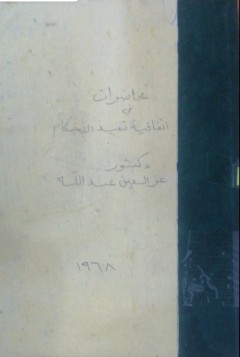 محاضرات
في
اتفاقية تنفيذ الاحكام
دكتور
عز الدين عبد الله
١٩٦٨